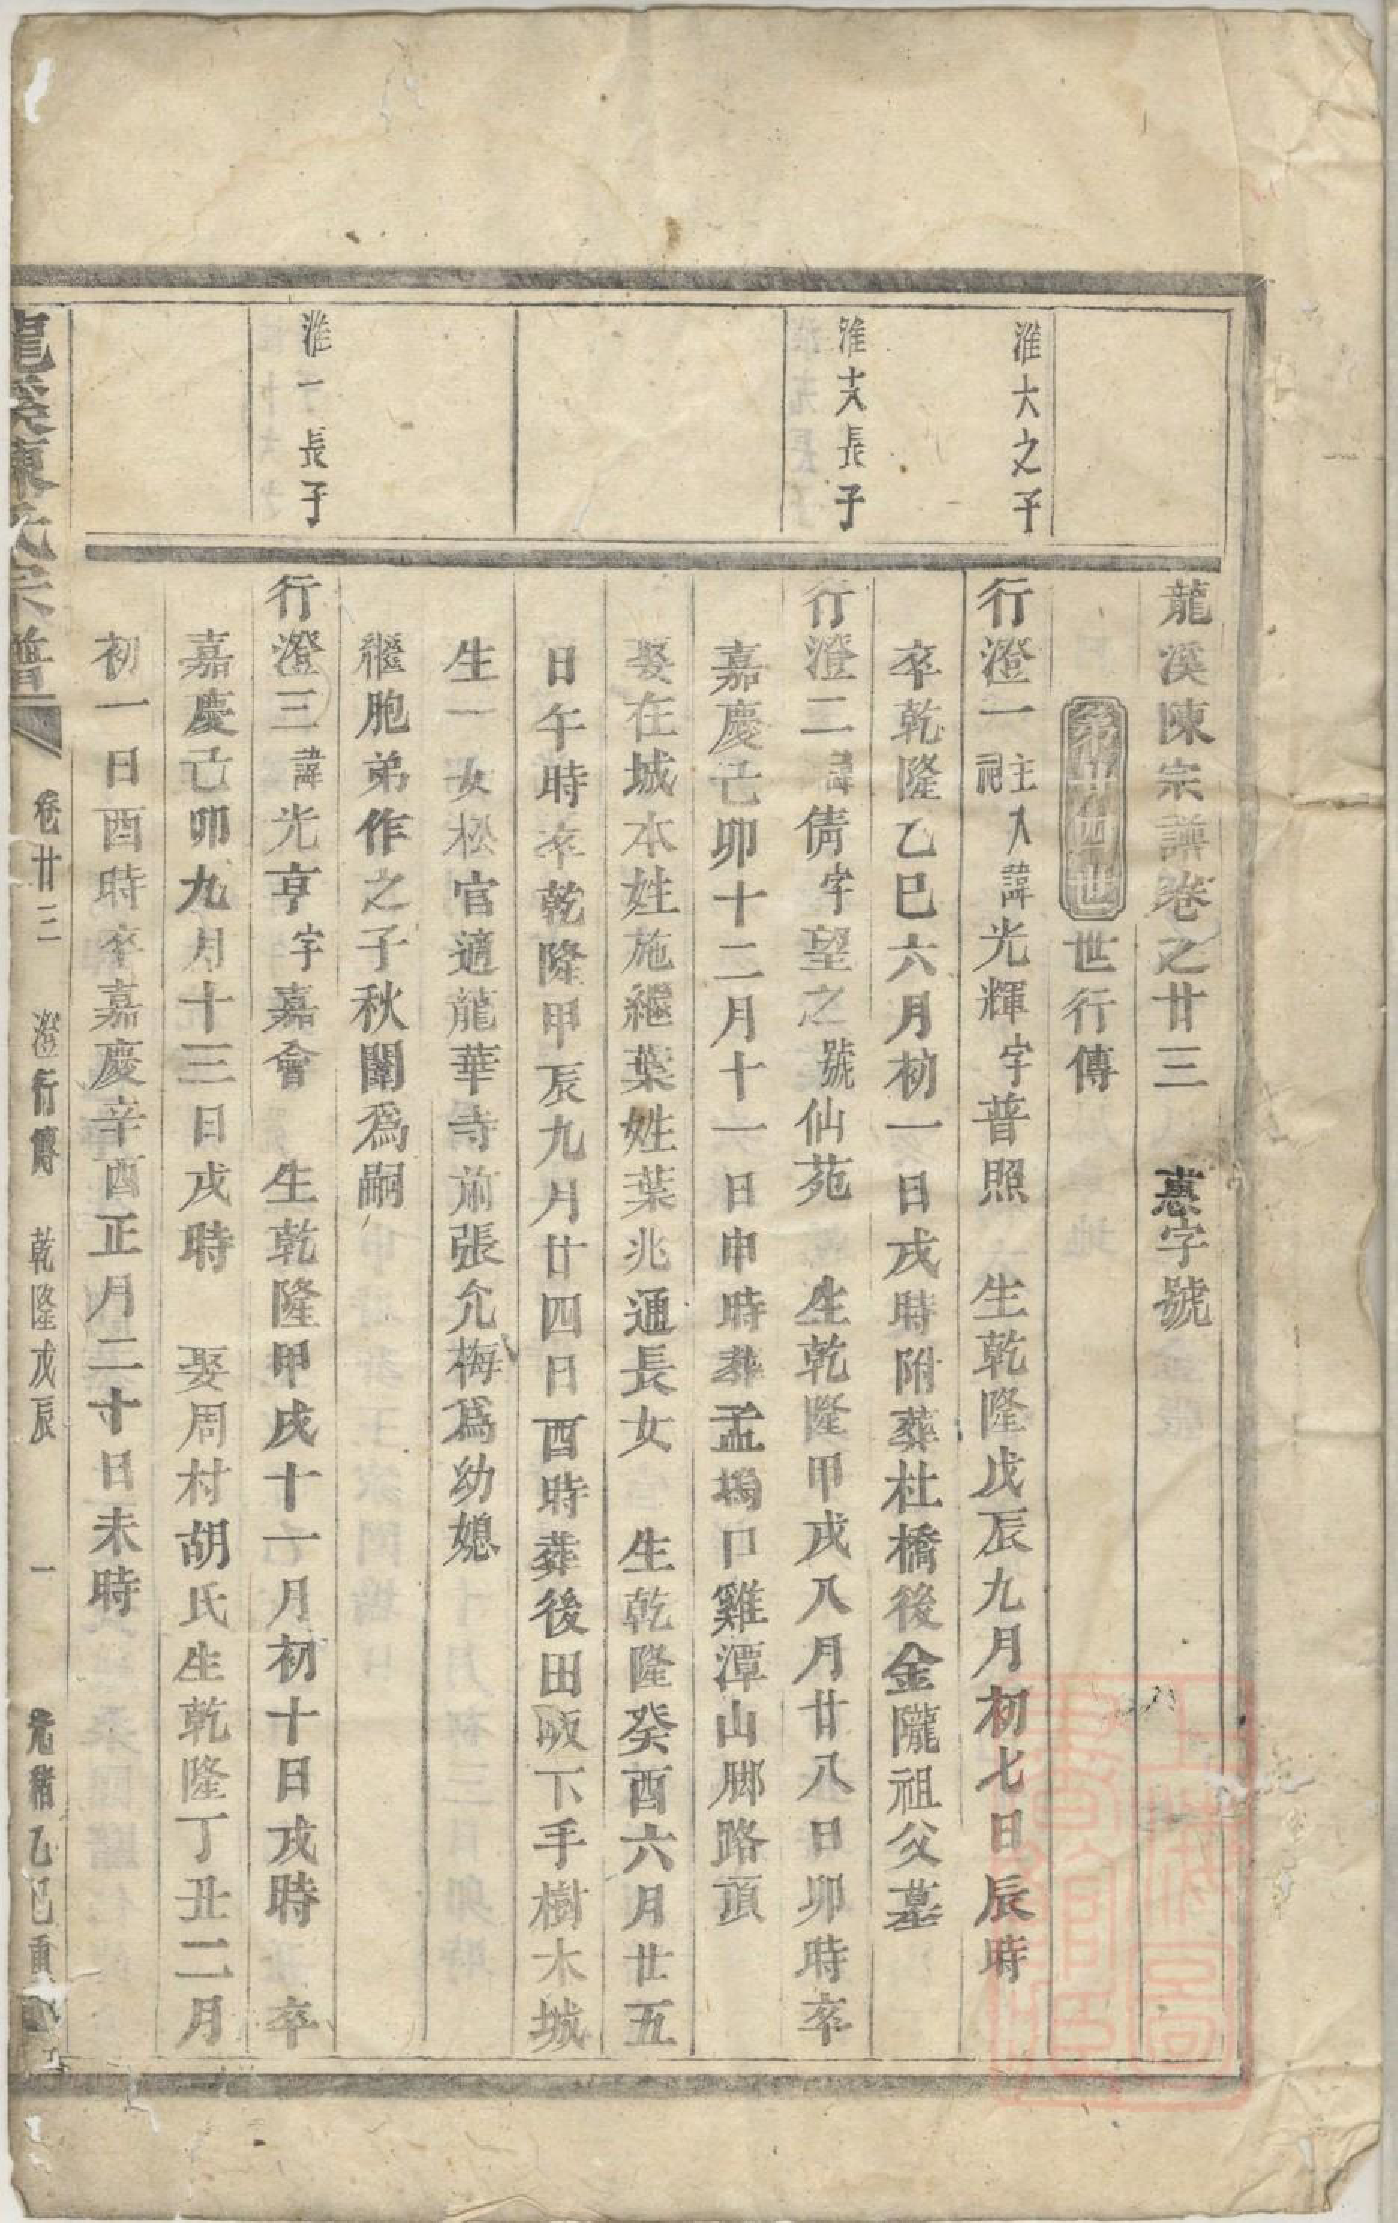 龍溪陳宗譜卷之廿三　蕙字號
第廿四世世行傳
淮大之子
行澄一主祀入諱光輝字普照　生乾隆戊辰九月初七日辰時
卒乾隆乙巳六月初一日戌時附葬杜橋後金隴祖父墓
淮大長子
行澄二諱倩字望之號仙苑　生乾隆甲戌八月廿八日卯時卒
嘉慶己卯十二月十一日申時葬孟塢口雞潭山脚路頂
娶在城本姓施繼葉姓葉兆通長女　生乾隆癸酉六月廿五
日午時卒乾隆甲辰九月廿四日酉時葬後田畈下手樹木城
生一女松官適龍華寺前張允梅爲幼媳
繼胞弟作之子秋闈爲嗣
淮一長子
行澄三諱光亨字嘉會　生乾隆甲戌十一月初十日戌時　卒
嘉慶己卯九月十三日戌時　娶周村胡氏生乾隆丁丑二月
初一日酉時卒嘉慶辛酉正月二十日未時
龍溪陳氏宗譜　卷廿三　澄行傳　乾隆戊辰　一　光緒乙巳重